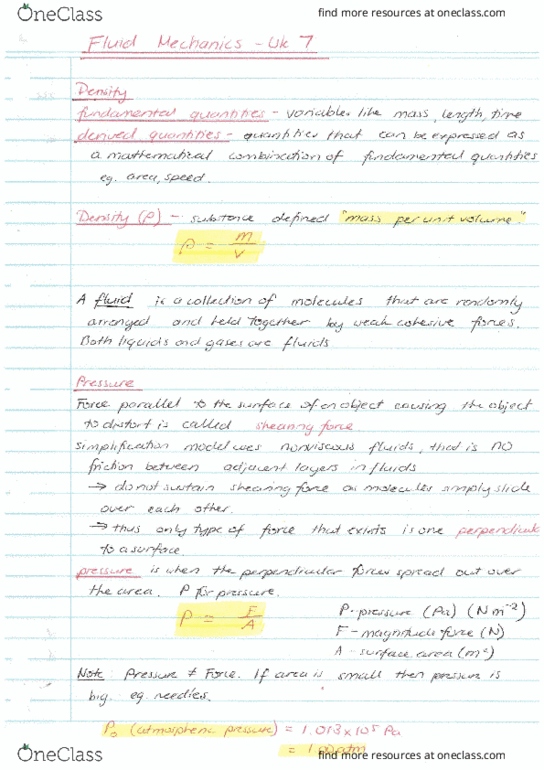 OneClass
find more resources at oneclass.com
Fluid Mechanics - Wk 7
Density
fundamental quantities - variables like mass, length, time
derived quantities - quantities that can be expressed as
a mathematical combination of fundamental quantities
eg. area, speed.
Density (ρ) - substance defined "mass per unit volume."
ρ = m/v
A fluid is a collection of molecules that are randomly
arranged and held together by weak cohesive forces.
Both liquids and gases are fluids
Pressure
Force parallel to the surface of an object causing the object
to distort is called shearing force
simplification model uses nonviscous fluids, that is no
friction between adjacent layers in fluids
→ do not sustain shearing force as molecules simply slide
over each other.
→ thus only type of force that exists is one perpendicular
to a surface.
pressure is when the perpendicular forces spread out over
the area. P for pressure.
P = F/A
P - pressure (Pa) (N m⁻²)
F - magnitude force (N)
A - surface area (m²)
Note: Pressure ≠ Force. If area is small then pressure is
big. eg. needles.
P₀ (atmospheric pressure) = 1.013 x 10⁵ Pa
= 1.00 atm
OneClass
find more resources at oneclass.com